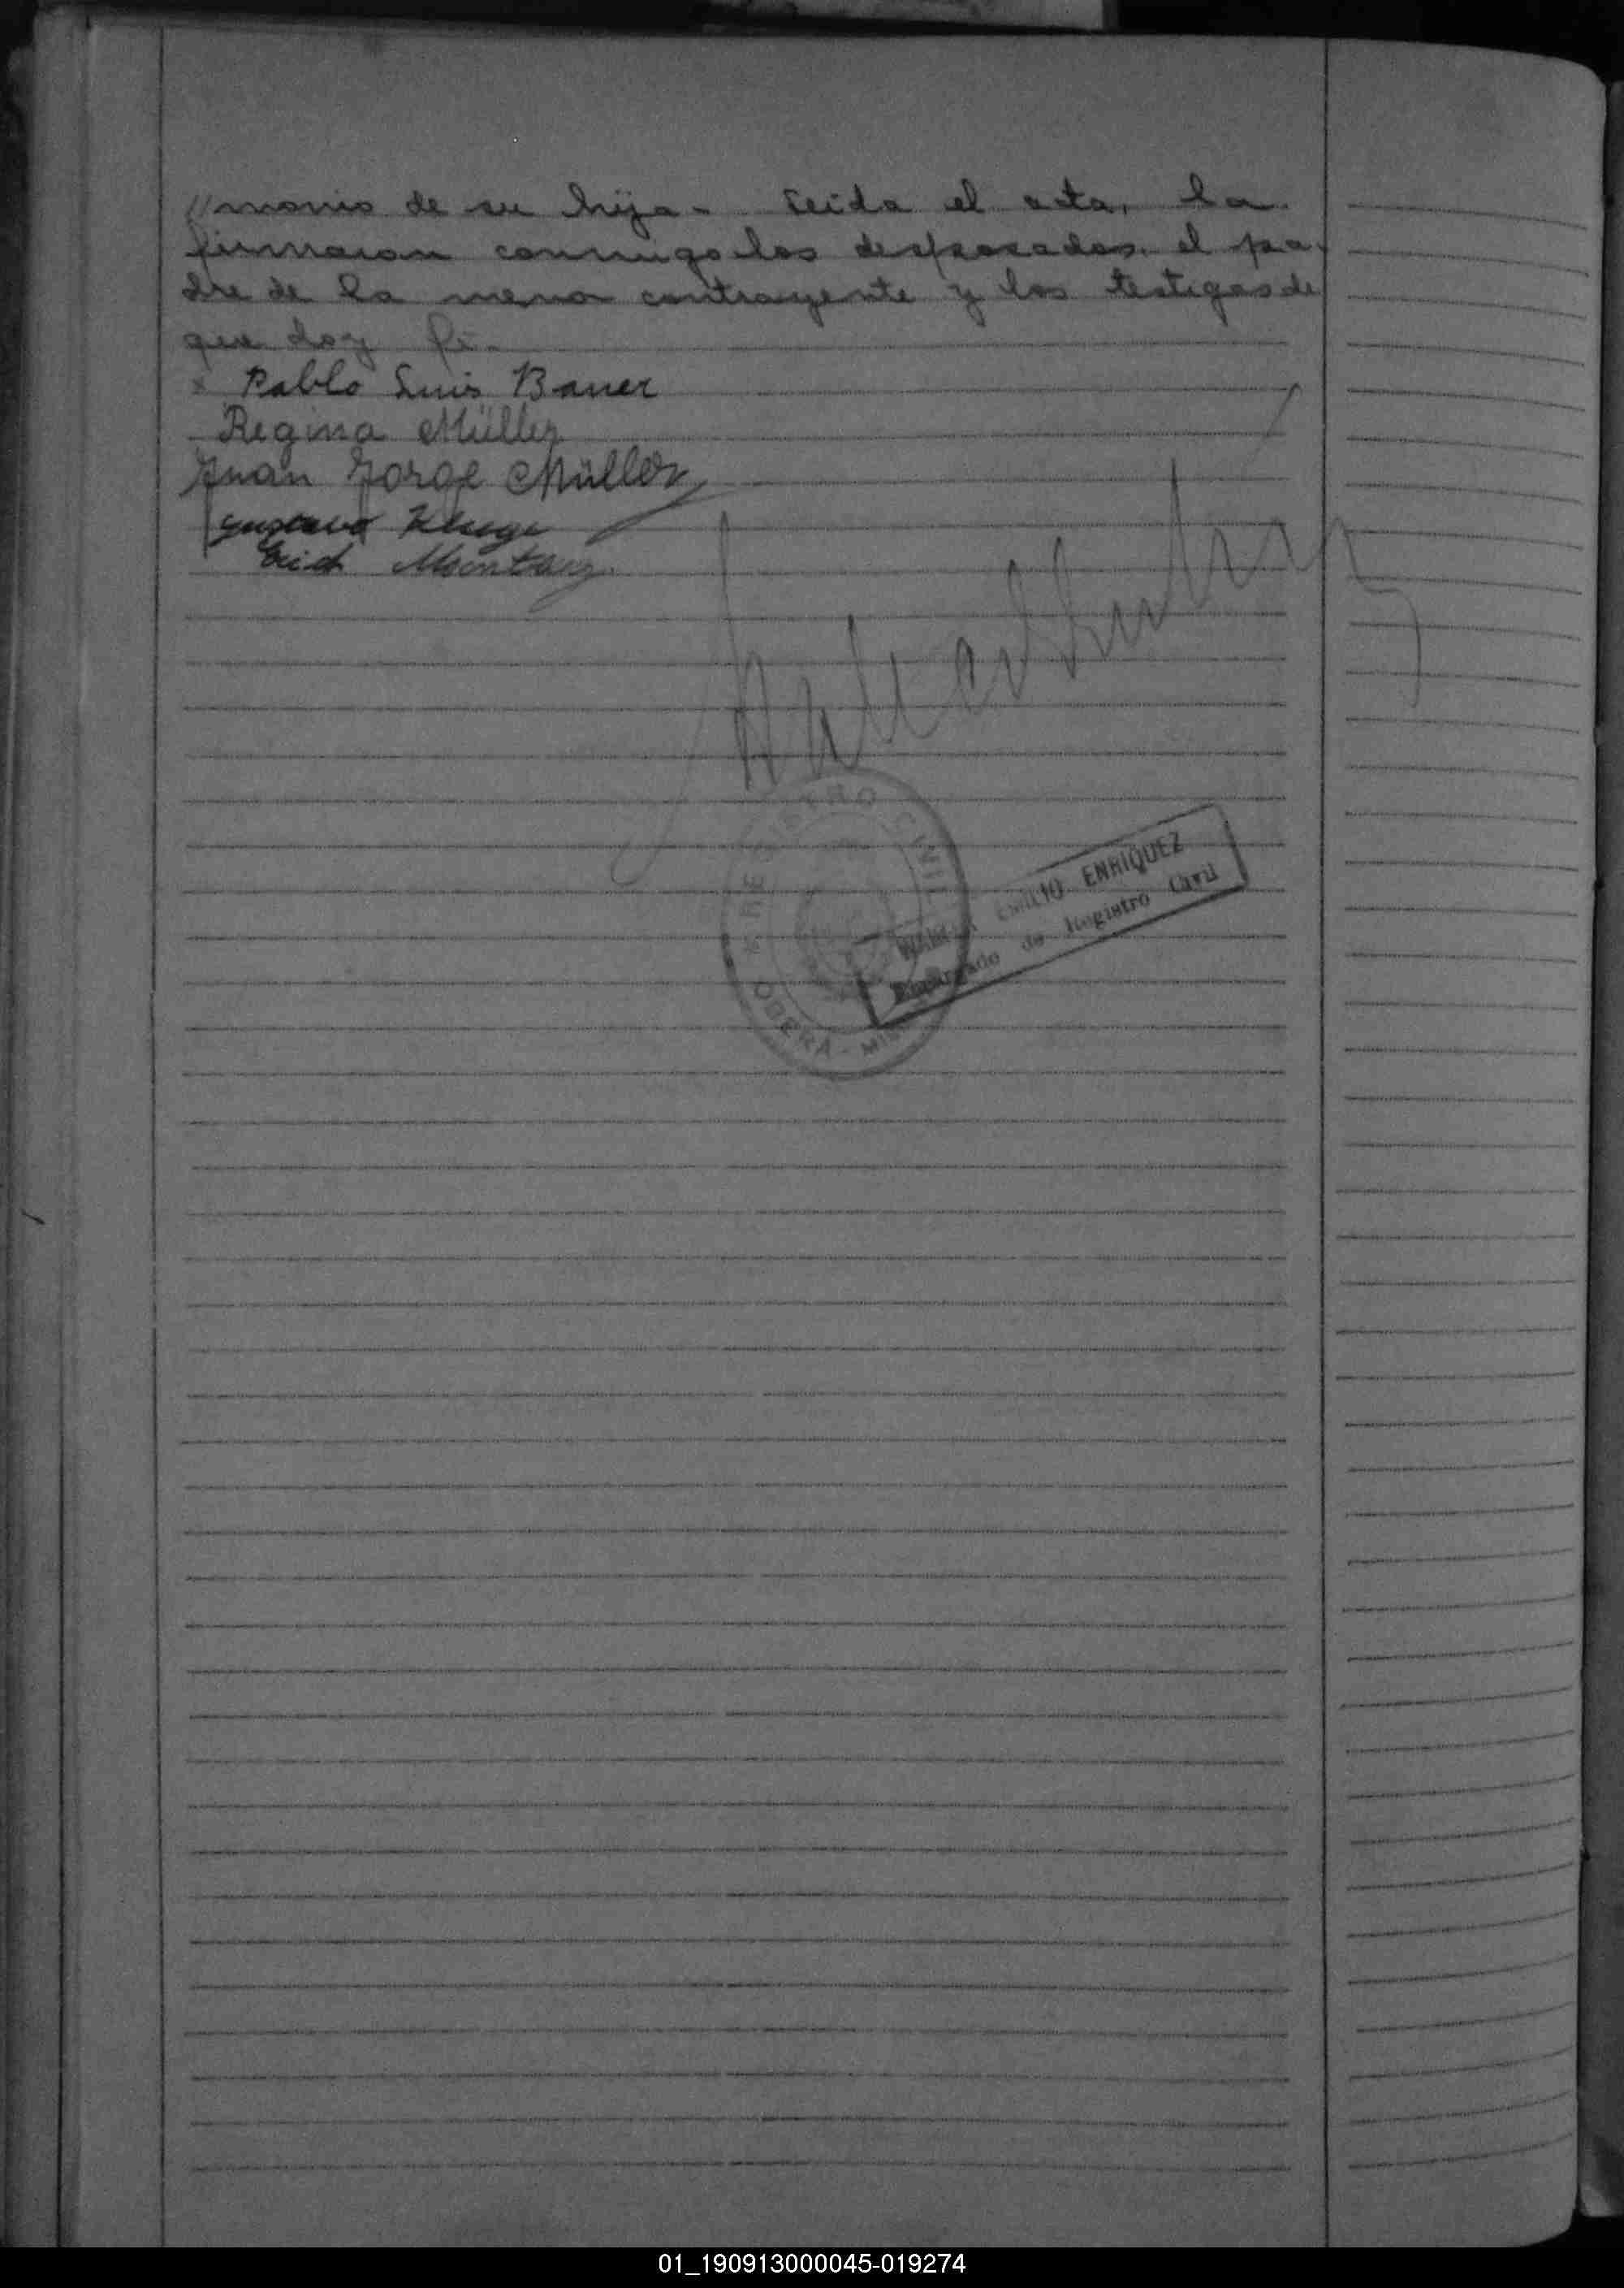 //monio de su hija - Leida el acta, la
firmaron conmigo los desposados, el pa-
dre de la menor contrayente y los testigos de
que doy fé -
x Pablo Luis Bauer
Regina Müller
Juan Jorge Müller
Gustavo Kluge
Erich
REGISTRO CIVIL
OBERA - MIS
EMILIO ENRIQUEZ
Encargado de Registro Civil
01_190913000045-019274